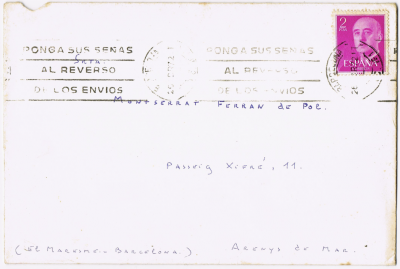 PONGA SUS SEÑAS
AL REVERSO
DE LOS ENVIOS
PONGA SUS SEÑAS
AL REVERSO
DE LOS ENVIOS
2
ESPAÑA
Srta.
Montserrat Ferran de Pol.
Passeig Xifré, 11.
(El Maresme - Barcelona.) Arenys de Mar.